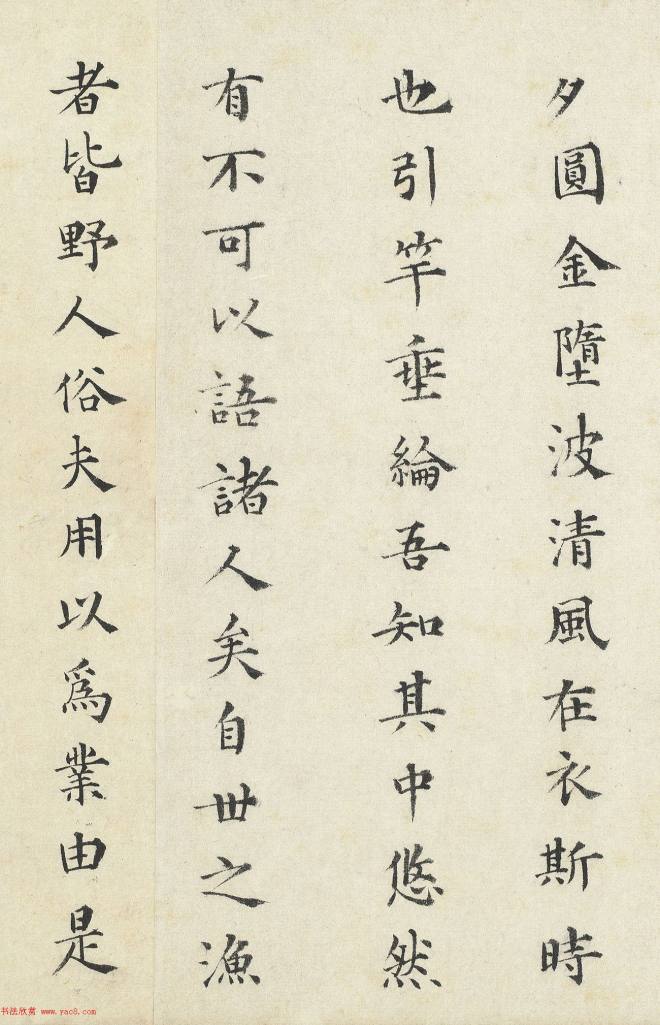 夕圓金墮波清風在衣斯時
也引竿垂綸吾知其中悠然
有不可以語諸人矣自世之漁
者皆野人俗夫用以為業由是
书法欣赏 www.yac8.com